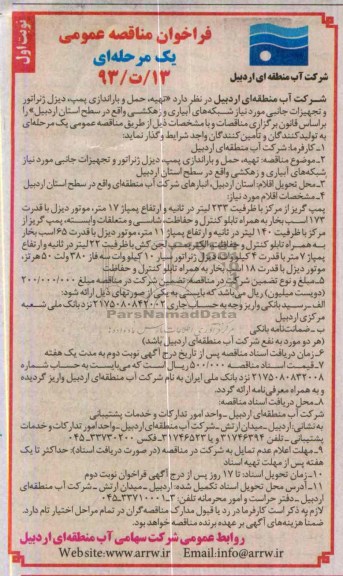 نوبت اول
فراخوان مناقصه عمومی
یک مرحله‌ای
۱۳/ت/۹۳
شرکت آب منطقه ای اردبیل
شرکت آب منطقه‌ای اردبیل در نظر دارد «تهیه، حمل و باراندازی پمپ، دیزل ژنراتور
و تجهیزات جانبی مورد نیاز شبکه‌های آبیاری و زهکشی واقع در سطح استان اردبیل» را
براساس قانون برگزاری مناقصات و با مشخصات ذیل از طریق مناقصه عمومی یک مرحله‌ای
به تولیدکنندگان و تأمین کنندگان واجد شرایط واگذار نماید:
۱ـ کارفرما: شرکت آب منطقه‌ای اردبیل
۲ـ موضوع مناقصه: تهیه، حمل و باراندازی پمپ، دیزل ژنراتور و تجهیزات جانبی مورد نیاز
شبکه‌های آبیاری و زهکشی واقع در سطح استان اردبیل
۳ـ محل تحویل اقلام: استان اردبیل، انبارهای شرکت آب منطقه‌ای واقع در سطح استان اردبیل
۴ـ مشخصات اقلام مورد نیاز:
پمپ گریز از مرکز با ظرفیت ۲۳۳ لیتر در ثانیه و ارتفاع پمپاژ ۱۷ متر، موتور دیزل با قدرت
۱۷۳ اسب بخار به همراه تابلو کنترل و حفاظت، شاسی و متعلقات وابسته، پمپ گریز از
مرکز با ظرفیت ۱۴۰ لیتر در ثانیه و ارتفاع پمپاژ ۱۱ متر، موتور دیزل با قدرت ۶۵ اسب بخار
به همراه تابلو کنترل و حفاظت و الکتروپمپ لجن کش با ظرفیت ۲۲ لیتر در ثانیه و ارتفاع
پمپاژ ۷ متر با قدرت ۴ کیلووات دیزل ژنراتور سیار ۱۰ کیلو وات سه فاز ۳۸۰ ولت ۵۰ هرتز،
موتور دیزل با قدرت ۱۸ اسب بخار به همراه تابلو کنترل و حفاظت
۵ـ مبلغ و نوع تضمین شرکت در مناقصه: تضمین شرکت در مناقصه مبلغ ۲۰۰/۰۰۰/۰۰۰
(دویست میلیون) ریال می‌باشد که بایستی به یکی از صورتهای ذیل ارائه شود:
الف ـ رسید بانکی واریز وجه به حساب جاری ۲۱۷۵۰۸۰۸۴۲۰۰۲ نزد بانک ملی شعبه
مرکزی اردبیل
ب ـ ضمانت‌نامه بانکی
(هر دو مورد به نفع شرکت آب منطقه‌ای اردبیل باشد)
۶ـ زمان دریافت اسناد مناقصه پس از تاریخ درج آگهی نوبت دوم به مدت یک هفته
۷ـ قیمت اسناد مناقصه ۵۰۰/۰۰۰ ریال است که می‌بایست به حساب شماره
۲۱۷۵۰۸۰۸۳۲۰۰۸ نزد بانک ملی ایران به نام شرکت آب منطقه‌ای اردبیل واریز گردیده
و به همراه معرفی‌نامه ارائه گردد.
۸ـ محل دریافت اسناد مناقصه:
شرکت آب منطقه‌ای اردبیل ـ واحد امور تدارکات و خدمات پشتیبانی
به نشانی: اردبیل ـ میدان ارتش ـ شرکت آب منطقه‌ای اردبیل ـ واحد امور تدارکات و خدمات
پشتیبانی ـ تلفن ۳۱۷۴۶۳۹۴ و یا ۳۱۷۴۶۵۲۳ ـ فکس ۳۳۷۳۰۲۰۰ـ۰۴۵
۹ـ مهلت اعلام عدم تمایل به شرکت در مناقصه (در صورت دریافت اسناد): حداکثر تا یک
هفته پس از مهلت تهیه اسناد
۱۰ـ زمان تحویل اسناد: تا ۱۷ روز پس از درج آگهی فراخوان نوبت دوم
۱۱ـ آدرس محل تحویل اسناد تکمیل شده: اردبیل ـ میدان ارتش ـ شرکت آب منطقه‌ای
اردبیل ـ دفتر حراست و امور محرمانه تلفن: ۳ـ۳۳۷۱۰۰۰۱ـ۰۴۵
لازم به ذکر است کارفرما در رد یا قبول مدارک مناقصه‌گران در تمامی مراحل اختیار تام دارد.
ضمناً هزینه‌های آگهی بر عهده برنده مناقصه خواهد بود.
روابط عمومی شرکت سهامی آب منطقه‌ای اردبیل
Website:www.arrw.ir Email:info@arrw.ir
ParsNamadData